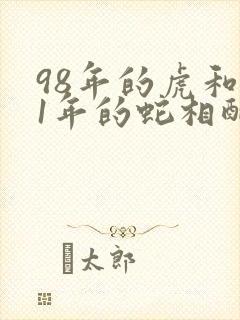 98年的虎和
1年的蛇相
太郎